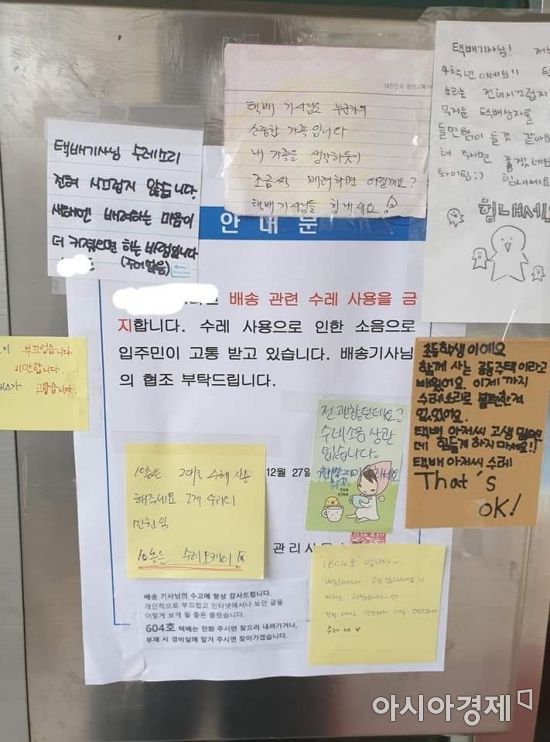 택배기사님 수레소리
전혀 시끄럽지 않습니다.
새해엔 배려하는 마음이
더 커졌으면 하는 바램입니다
(주어없음)
택배 기사님도 누군가의
소중한 가족입니다
내 가족을 생각하듯이
조금씩 배려하면 어떨까요?
택배 기사님들 힘내세요!
택배기사님! 저는
4학년이에요!! 택
소리는 전혀시끄럽지
무거운 택배상자를
들면 힘이 들것 같아요
해 주시면 좋겠네요
화이팅:) 힘내세요
힘내세요
안 내 문
배송 관련 수레 사용을 금
지합니다. 수레 사용으로 인한 소음으로
입주민이 고통 받고 있습니다. 배송기사님
의 협조 부탁드립니다.
12월 27일
관리사무
부끄럽습니다.
미안합니다.
고맙습니다.
전 괜찮은데요?
수레소음 상관
없습니다~
초등학생이에요
함께 사는 공동주택이라고
배웠어요. 이제까지
수레소리로 불편한적
없었어요.
택배 아저씨 고생 많으신
데 힘들게 하지 마세요!!
택배 아저씨 수레
That's
OK!
그대로 수레 사용
해주세요 2개 수레미
만원임
수레오케이
배송 기사님의 수고에 항상 감사드립니다.
개인적으로 부끄럽고 인터넷에서나 보던 글을
이렇게 보게 될 줄은 몰랐습니다.
604호 택배는 전화 주시면 찾으러 내려가거나,
부재 시 경비실에 맡겨 주시면 찾아가겠습니다.
1804호 입니다~
수레 ok
아시아경제